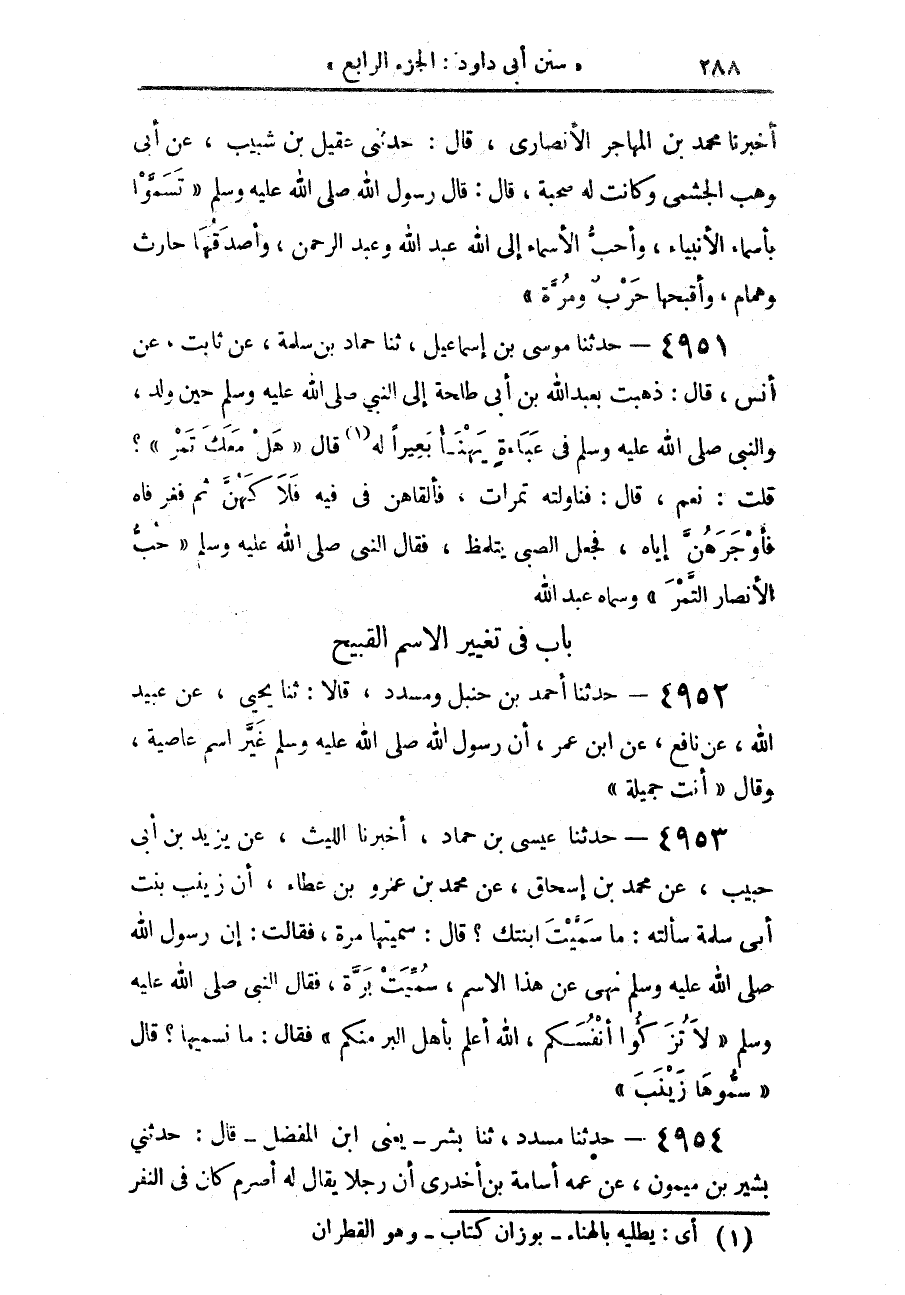 ٢٨٨ « سنن أبى داود : الجزء الرابع »
أخبرنا محمد بن المهاجر الأنصارى ، قال : حدثنى عقيل بن شبيب ، عن أبى
وهب الجشمى وكانت له صحبة ، قال : قال رسول الله صلى الله عليه وسلم « تَسَمَّوْا
بأسماء الأنبياء ، وأحبُّ الأسماء إلى الله عبد الله وعبد الرحمن ، وأصدَقُهَا حارث
وهمام ، وأقبحها حَرْبٌ ومُرَّة »
٤٩٥١ — حدثنا موسى بن إسماعيل ، ثنا حماد بن سلمة ، عن ثابت ، عن
أنس ، قال : ذهبت بعبدالله بن أبى طلحة إلى النبي صلى الله عليه وسلم حين ولد ،
والنبى صلى الله عليه وسلم فى عَبَاءَةٍ يَهْنَأُ بَعِيراً له (١) قال « هَلْ مَعَكَ تَمْر » ؟
قلت : نعم ، قال : فناولته تمرات ، فألقاهن فى فيه فَلَاكَهُنَّ ثم فغر فاه
فَأَوْجَرَهُنَّ إياه ، فجعل الصبى يتلمظ ، فقال النبى صلى الله عليه وسلم « حُبُّ
الأنصار التَّمْرَ » وسماه عبد الله
باب فى تغيير الاسم القبيح
٤٩٥٢ — حدثنا أحمد بن حنبل ومسدد ، قالا : ثنا يحيى ، عن عبيد
الله ، عن نافع ، عن ابن عمر ، أن رسول الله صلى الله عليه وسلم غَيَّرَ اسم عاصية ،
وقال « أنت جميلة »
٤٩٥٣ — حدثنا عيسى بن حماد ، أخبرنا الليث ، عن يزيد بن أبى
حبيب ، عن محمد بن إسحاق ، عن محمد بن عمرو بن عطاء ، أن زينب بنت
أبى سلمة سألته : ما سَمَّيْتَ ابنتك ؟ قال : سميتها مرة ، فقالت : إن رسول الله
صلى الله عليه وسلم نهى عن هذا الاسم ، سُمِّيَتْ بَرَّة ، فقال النبى صلى الله عليه
وسلم « لاَ تُزَكُّوا أنْفُسَكم ، الله أعلم بأهل البر منكم » فقال : ما نسميها ؟ قال
« سمُّوهَا زَيْنَبَ »
٤٩٥٤ — حدثنا مسدد ، ثنا بشر ــ يعنى ابن المفضل ــ قال : حدثني
بشير بن ميمون ، عن عمه أسامة بن أخدرى أن رجلا يقال له أصرم كان فى النفر
(١) أى : يطليه بالهناء ــ بوزان كتاب ــ وهو القطران